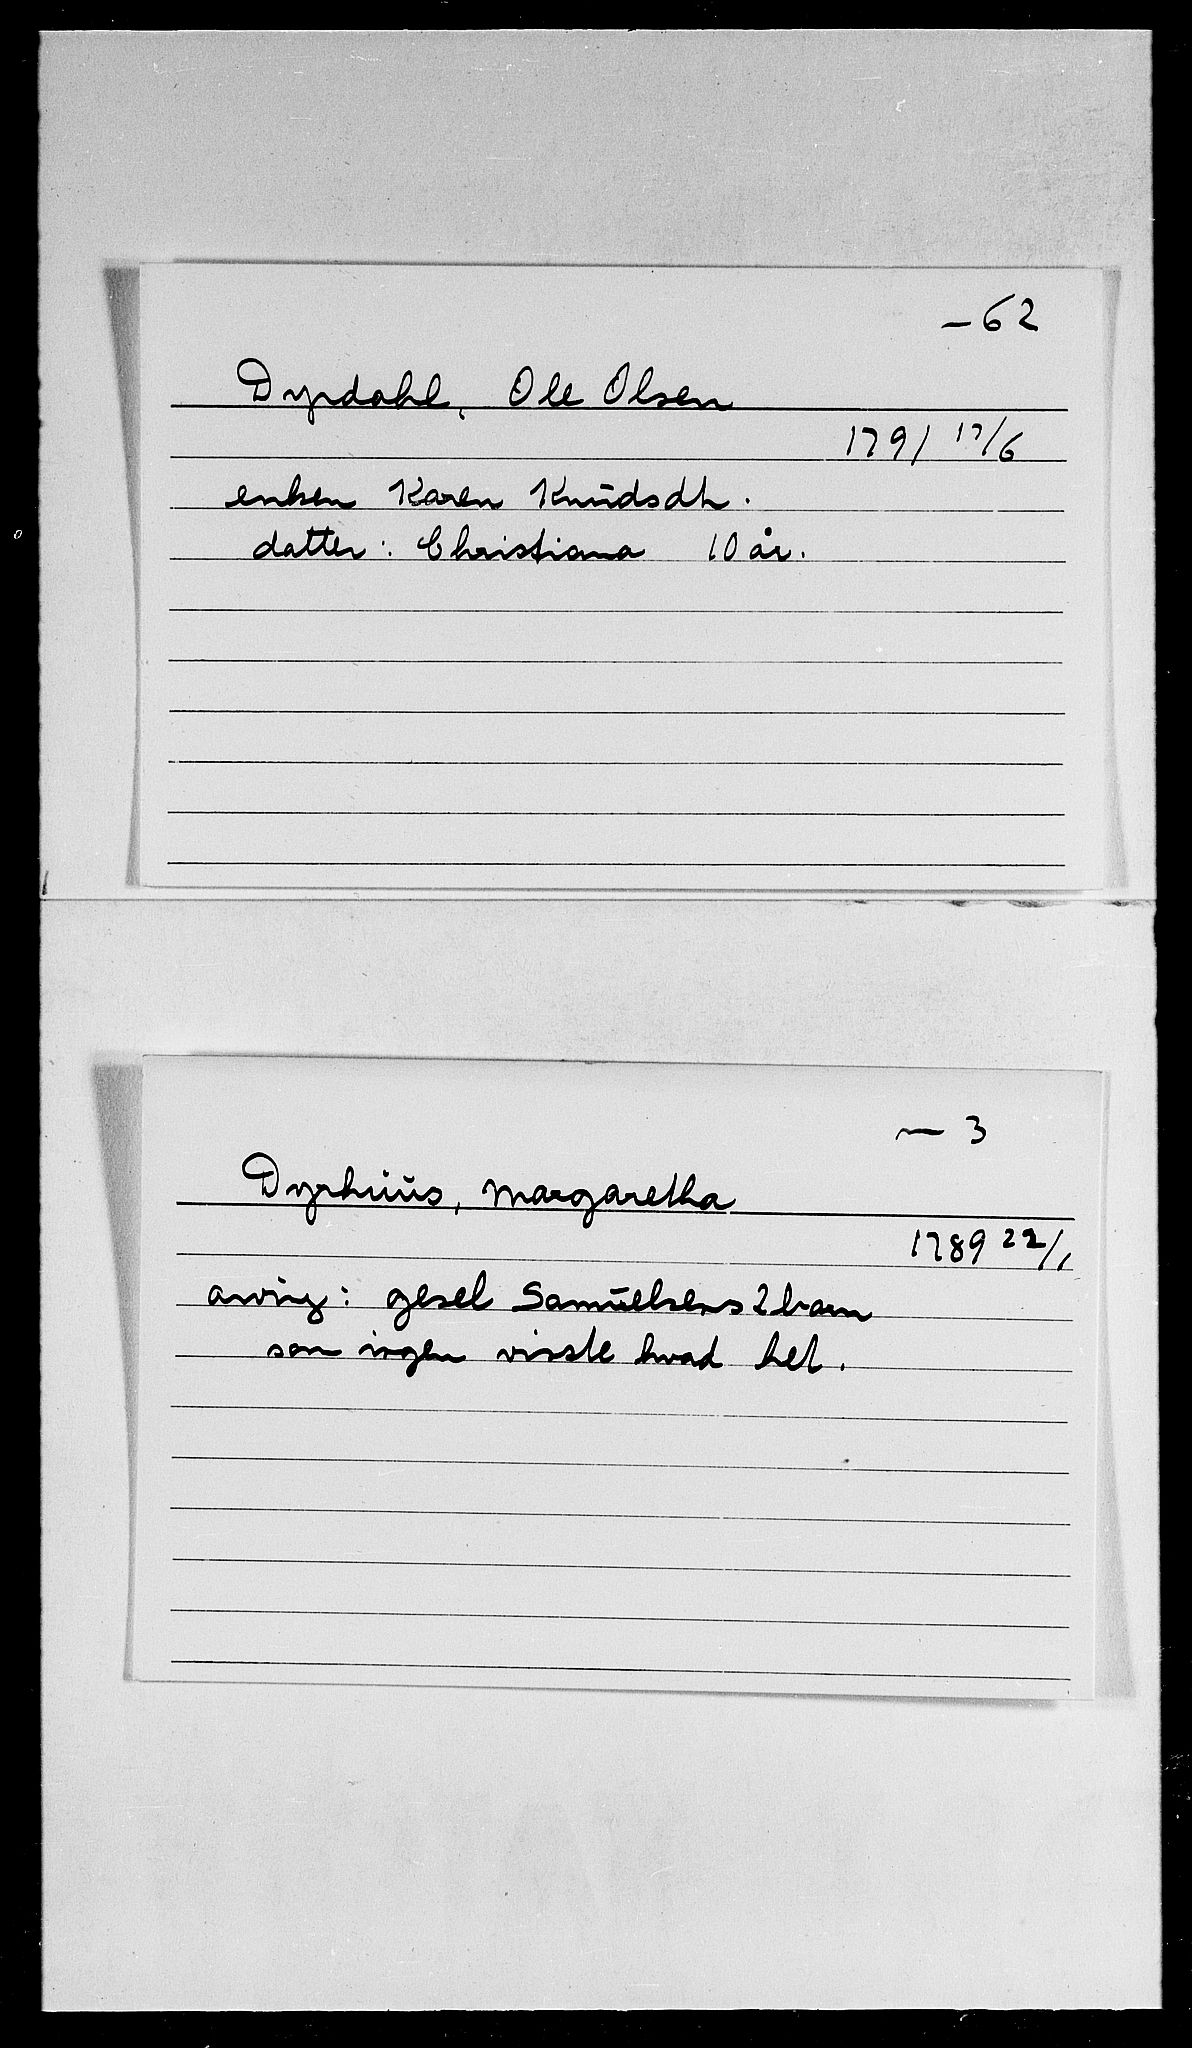 – 62
Dyrdahl, Ole Olsen
1791 17/6
enken Karen Knudsdtr.
datter: Christiana 10 år.
– 3
Dyrhuus, Margaretha
1789 22/1
arving: gesel Samuelsens 2 barn
som ingen visste hvad het.